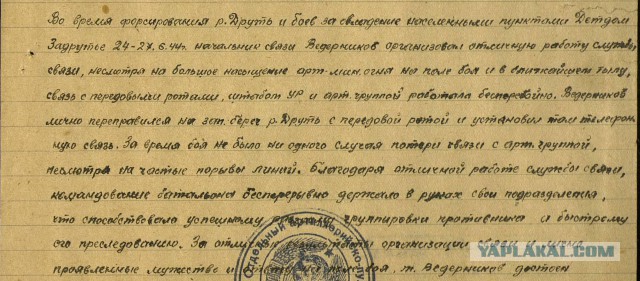 Во время форсирования р. Друть и боев за овладение населенными пунктами Детдом
Задрутье 24-27.6.44г. начальник связи Ведерников организовал отличную работу службы
связи, несмотря на большое насыщение арт-мин. огня на поле боя и в ближайшем тылу,
связь с передовыми ротами, штабом УР и арт. группой работала бесперебойно. Ведерников
лично переправился на зап. берег р. Друть с передовой ротой и установил там телефон-
ную связь. За время боя не было ни одного случая потери связи с арт. группой,
несмотря на частые порывы линий. Благодаря отличной работе службы связи,
командование батальона бесперерывно держало в руках свои подразделения,
что способствовало успешному группировки противника и быстрому
его преследованию. За отличные организации связи и лично
проявленные мужество и боя, т. Ведерников достоен
Отдельный артиллерийско-пу
YAPLAKAL.COM